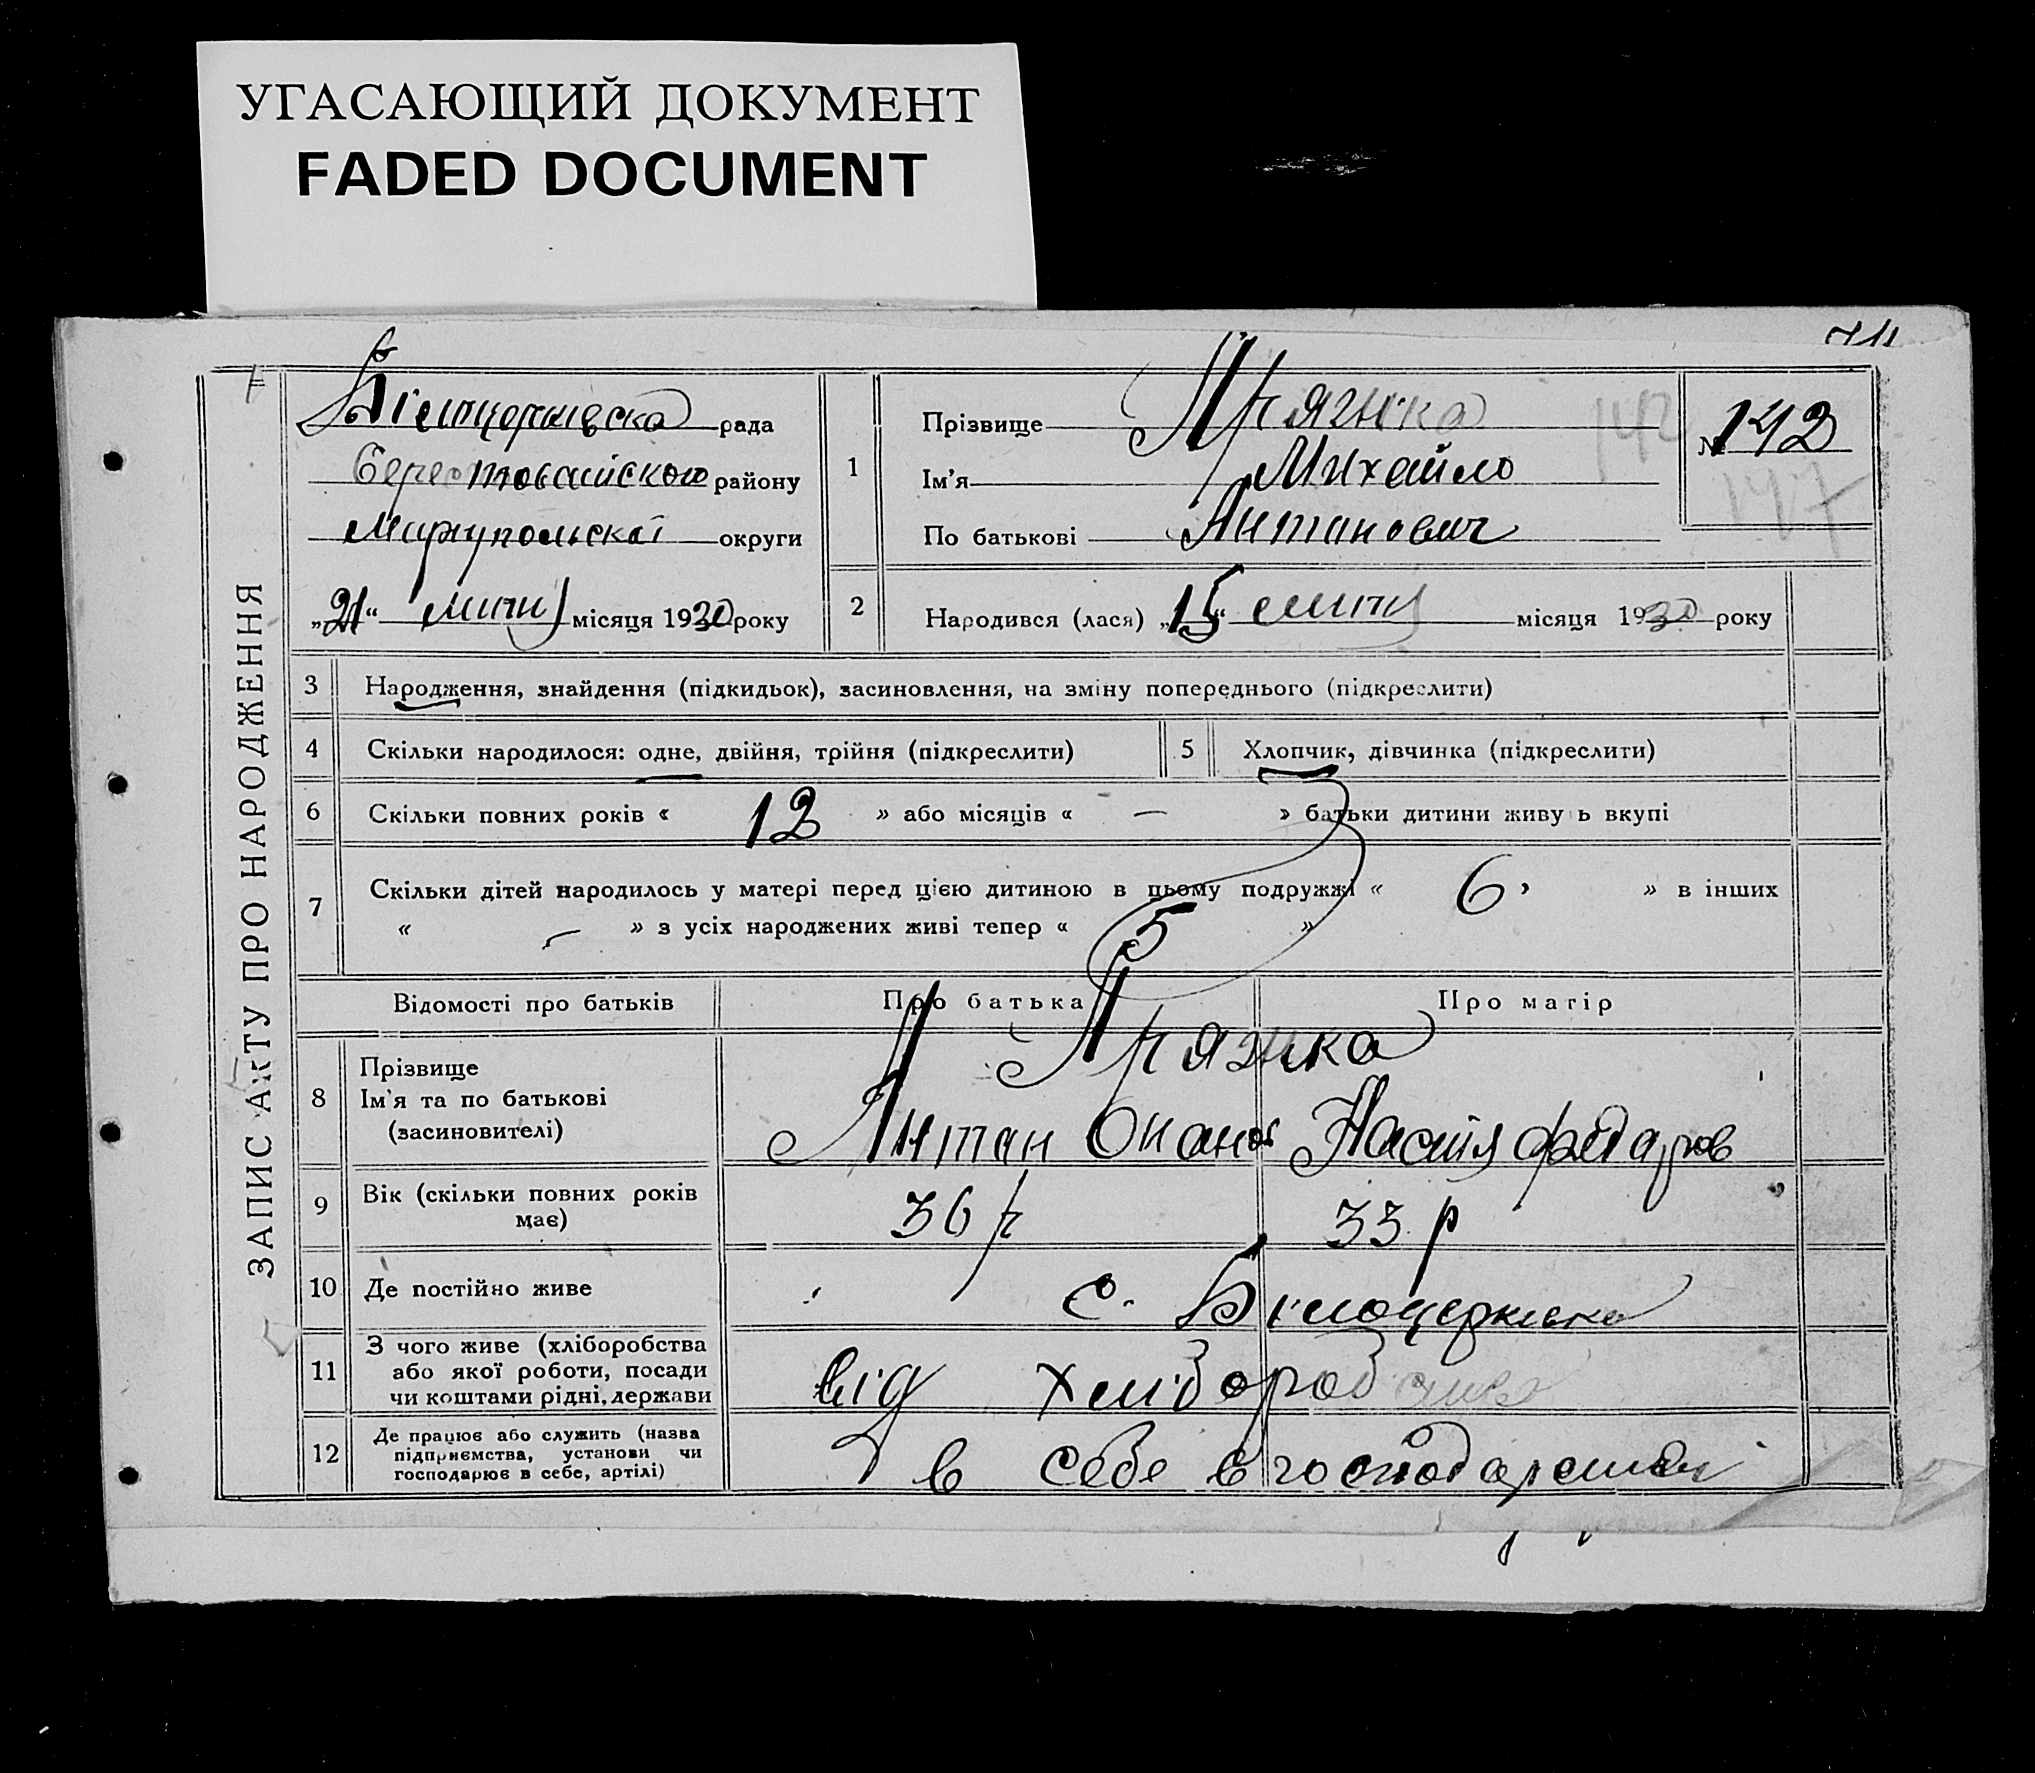 УГАСАЮЩИЙ ДОКУМЕНТ
FADED DOCUMENT
ЗАПИС АКТУ ПРО НАРОДЖЕННЯ
Білоцерківська рада
Берестовайского району
Мариупольскаї округи
„21“ лютий місяця 1930 року
1
Прізвище Пряжка
Ім'я Михайло
По батькові Антанович
№ 142
142
147
2
Народився (лася) „15“ лютий місяця 1930 року
3 Народження, знайдення (підкидьок), засиновлення, на зміну попереднього (підкреслити)
4 Скільки народилося: одне, двійня, трійня (підкреслити)
5 Хлопчик, дівчинка (підкреслити)
6 Скільки повних років « 12 » або місяців « — » батьки дитини живу ь вкупі
7 Скільки дітей народилось у матері перед цією дитиною в цьому подружжі « 6 » в інших
« — » з усіх народжених живі тепер « 5 »
Відомості про батьків Про батька Про матір
8 Прізвище
Ім'я та по батькові
(засиновителі)
Пряжка
Антан Настія
9 Вік (скільки повних років
має)
36 р 33 р
10 Де постійно живе с. Білоцерківка
11 З чого живе (хліборобства
або якої роботи, посади
чи коштами рідні, держави
від хліборобства
12 Де працює або служить (назва
підприємства, установи чи
господарює в себе, артілі)
в себе в господарстві